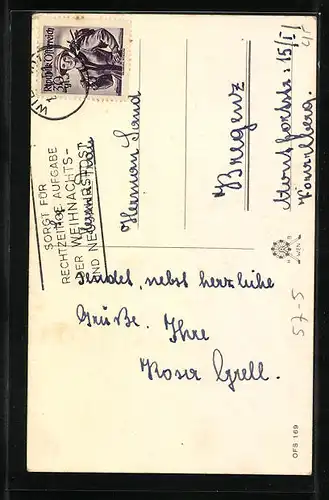 Republik Österreich
SORGT FÜR
RECHTZEITIGE AUFGABE
DER WEIHNACHTS-
UND NEUJAHRSPOST
Herman Sand
Bregenz
Montfortstr: 15/I
Vorarlberg.
sendet, nebst herzliche
Grüße. Ihre
Rosa Grell.
57-5
OFB 169